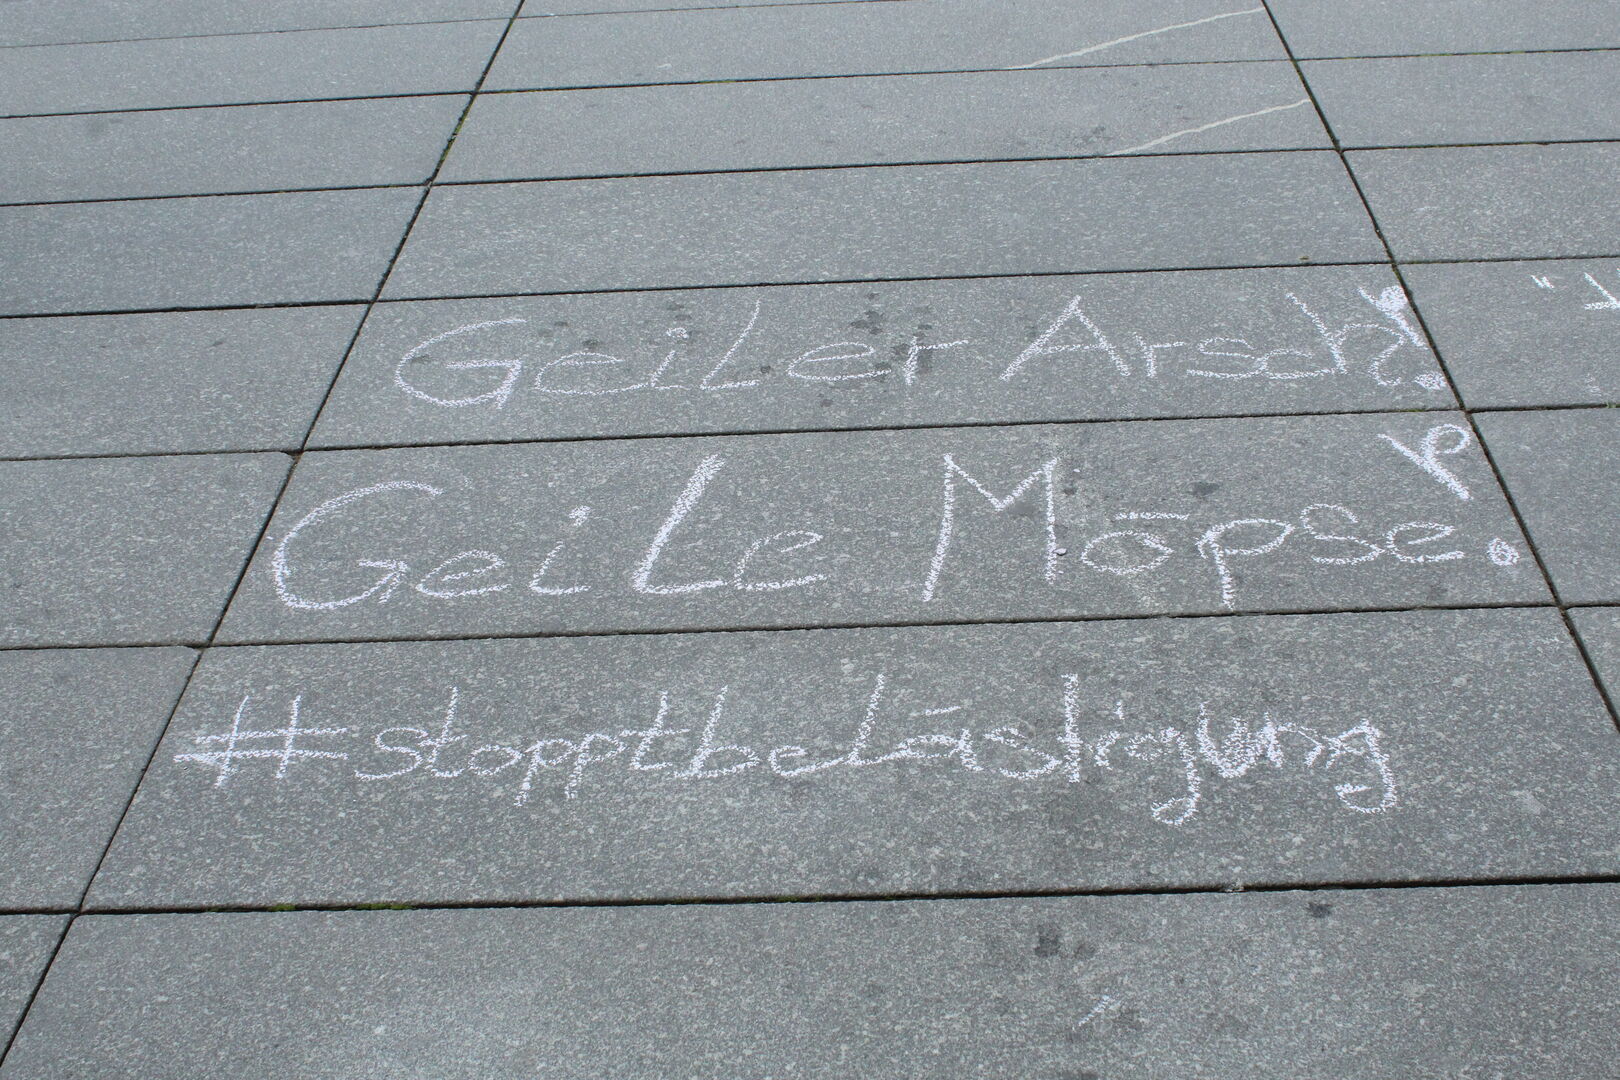 GeiLer Arsch!
GeiLe Möpse!
#stopptbeLästigung